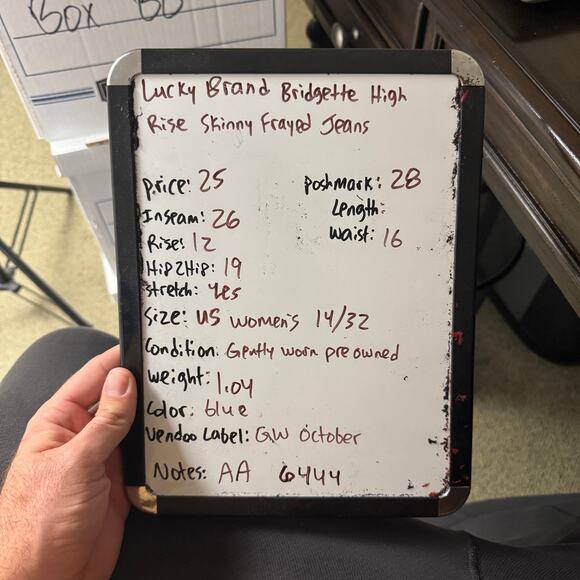 Box BO
Lucky Brand Bridgette High
Rise Skinny Frayed Jeans
Price: 25
Poshmark: 28
Length:
Inseam: 26
Waist: 16
Rise: 12
Hip2Hip: 19
Stretch: yes
Size: US Women's 14/32
Condition: Gently worn pre owned
Weight: 1.04
Color: blue
Vendoo Label: GW October
Notes: AA 6444